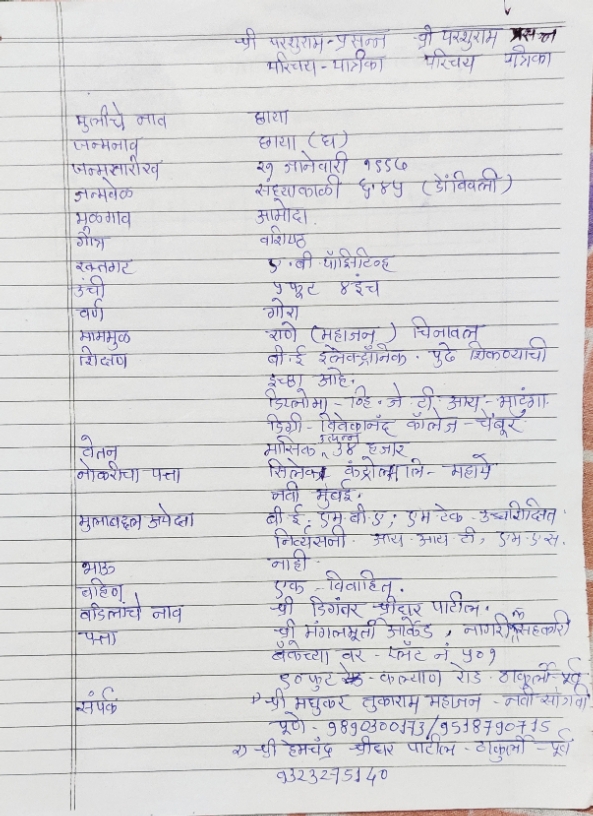 श्री परशुराम-प्रसन्न श्री परशुराम प्रसन्न
परिचय-पत्रिका परिचय पत्रिका
मुलीचे नाव छाया
जन्मनाव छाया (घ)
जन्मतारीख २१ जानेवारी १९९७
जन्मवेळ संध्याकाळी ६.४५ (डोंबिवली)
मूळगाव आमोदा.
गोत्र वशिष्ठ
रक्तगट ए.बी पॉझिटिव्ह
उंची ५ फूट ४ इंच
वर्ण गोरा
मामकुळ राणे (महाजन) चिनावल
शिक्षण बी.ई इलेक्ट्रॉनिक. पुढे शिकण्याची
इच्छा आहे.
डिप्लोमा - व्हि.जे.टी.आय - माटुंगा
डिग्री - विवेकानंद कॉलेज - चेंबूर
वेतन मासिक उत्पन्न ३४ हजार
नोकरीचा पत्ता सिलेक्ट कंट्रोल्स लि- महापे
नवी मुंबई.
मुलाबद्दल अपेक्षा बी.ई, एम.बी.ए; एम.टेक - उच्चशिक्षित
निर्व्यसनी. आय.आय.टी, एम.एस.
भाऊ नाही
बहिण एक - विवाहित.
वडिलांचे नाव श्री डिगंबर श्रीधर पाटील.
पत्ता श्री मंगलमूर्ती आर्केड, नागरिक सहकारी
बँकेच्या वर - प्लॉट नं ५०१
९० फुट - कल्याण रोड - ठाकुर्ली - पूर्व
संपर्क १) श्री मधुकर तुकाराम महाजन - नवी सांगवी
पूणे - 9890300173/9518790715
२) श्री हेमचंद्र श्रीधर पाटील - ठाकुर्ली - पूर्व
9323275140